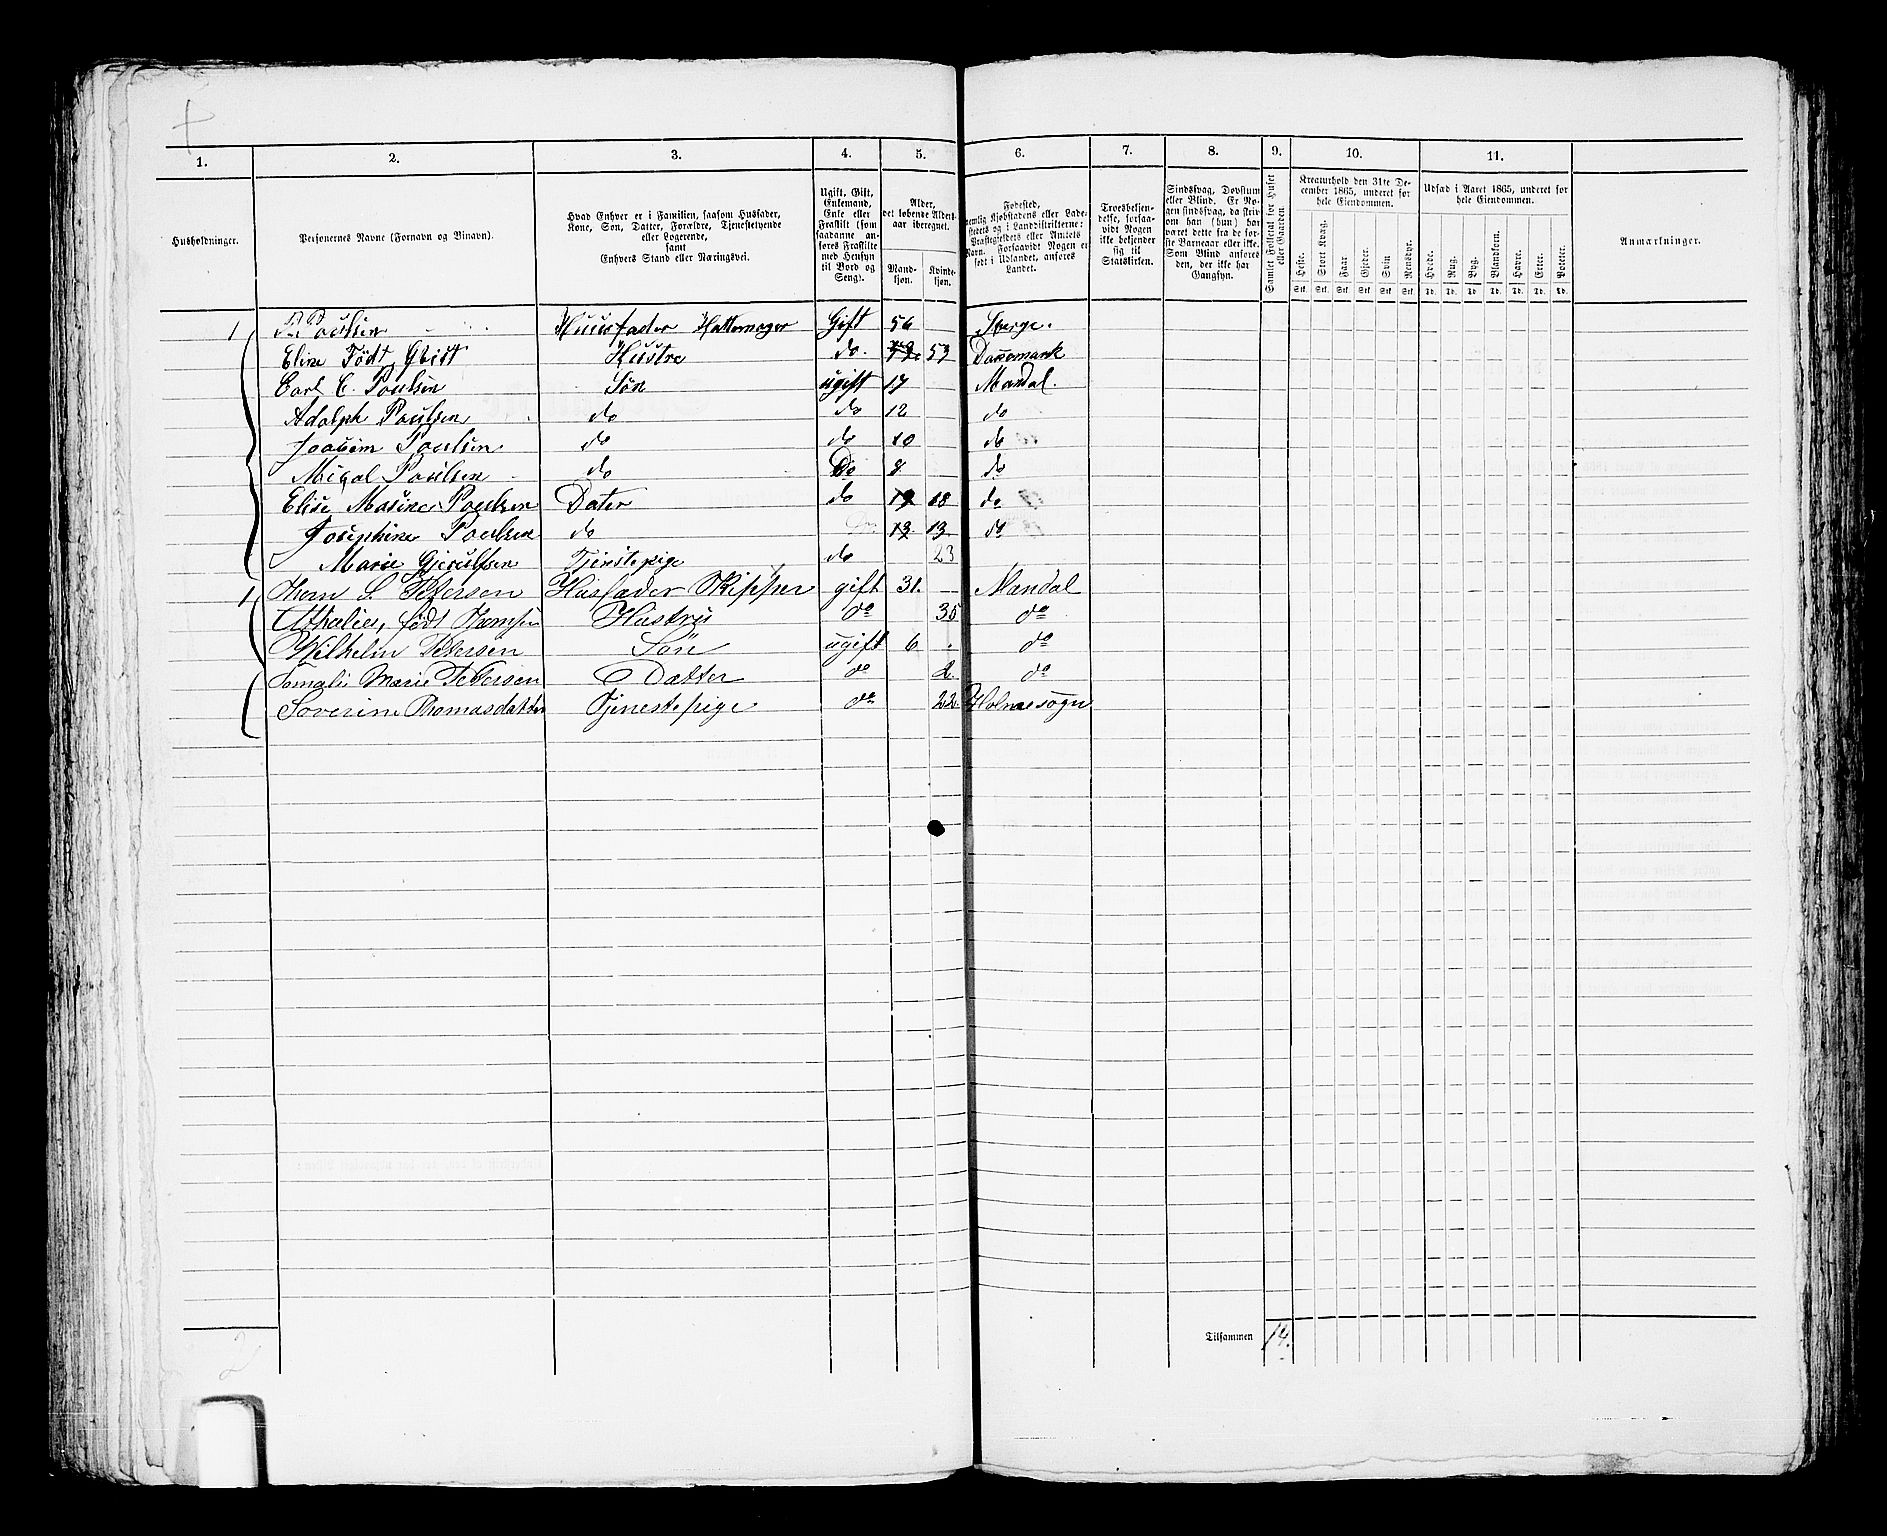 1. 2. 3. 4. 5. 6. 7. 8. 9. 10. 11.
Husholdninger.
Personernes Navne (Fornavn og Binavn).
Hvad Enhver er i Familien, saasom Husfader,
Kone, Søn, Datter, Forældre, Tjenestetyende
eller Logerende,
samt
Enhvers Stand eller Næringsvei.
Ugift, Gift,
Enkemand,
Enke eller
Fraskilt (som
saadanne an-
føres Fraskilte
med Hensyn
til Bord og
Seng).
Alder,
det løbende Alders-
aar iberegnet.
Mand-
kjøn.
Kvinde-
kjøn.
Fødested,
nemlig Kjøbstadens eller Lade-
stedets og i Landdistrikterne:
Præstegjeldets eller Amtets
Navn. Forsaavidt Nogen er
født i Udlandet, anføres
Landet.
Troesbekjen-
delse, forsaa-
vidt Nogen
ikke bekjender
sig til
Statskirken.
Sindssvag, Døvstum
eller Blind. Er No-
gen sindssvag, da skriv
om han (hun) har
været dette fra de før-
ste Barneaar eller ikke.
Som Blind anføres
den, der ikke har
Gangsyn.
Samlet Folketal for Huset
eller Gaarden.
Kreaturhold den 31te De-
cember 1865, underet for
hele Eiendommen.
Heste. Stort Kvæg. Faar Gjeder. Svin Rensdyr.
Stk. Stk. Stk. Stk. Stk. Stk.
Udsæd i Aaret 1865, underet for
hele Eiendommen.
Hvede. Rug. Byg. Blandkorn. Havre. Erter. Poteter.
Td. Td. Td. Td. Td. Td. Td.
Anmærkninger.
1 P. Poulsen Huusfader Hattemager Gift 56 Sverge.
Eline Født Qvist Hustre do. 53 Danemark
Carl C. Poulsen Søn ugift 17 Mandal.
Adolph Poulsen do do 12 do
Joacim Poulsen do do 10 do
Poulsen do Do 8 do
Elise Masine Poulsen Dater do 19 18 do
Josephine Poulsen do 13 13 do
Marie Gjerulfsen Tjenstepige do 23
1 S. Petersen Husfader Skipper gift 31. Mandal
Athalie, født Hustru do 35 do
Wilhelm Petersen Søn ugift 6 do
Marie Petersen Datter do 2. do
Severine Thomasdatter Tjenestepige do 22. Holmesogn
Tilsammen 14.